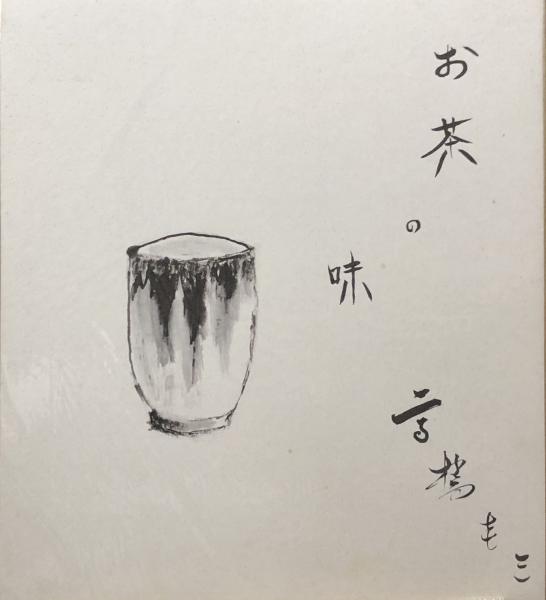 お茶の味
高橋もミ